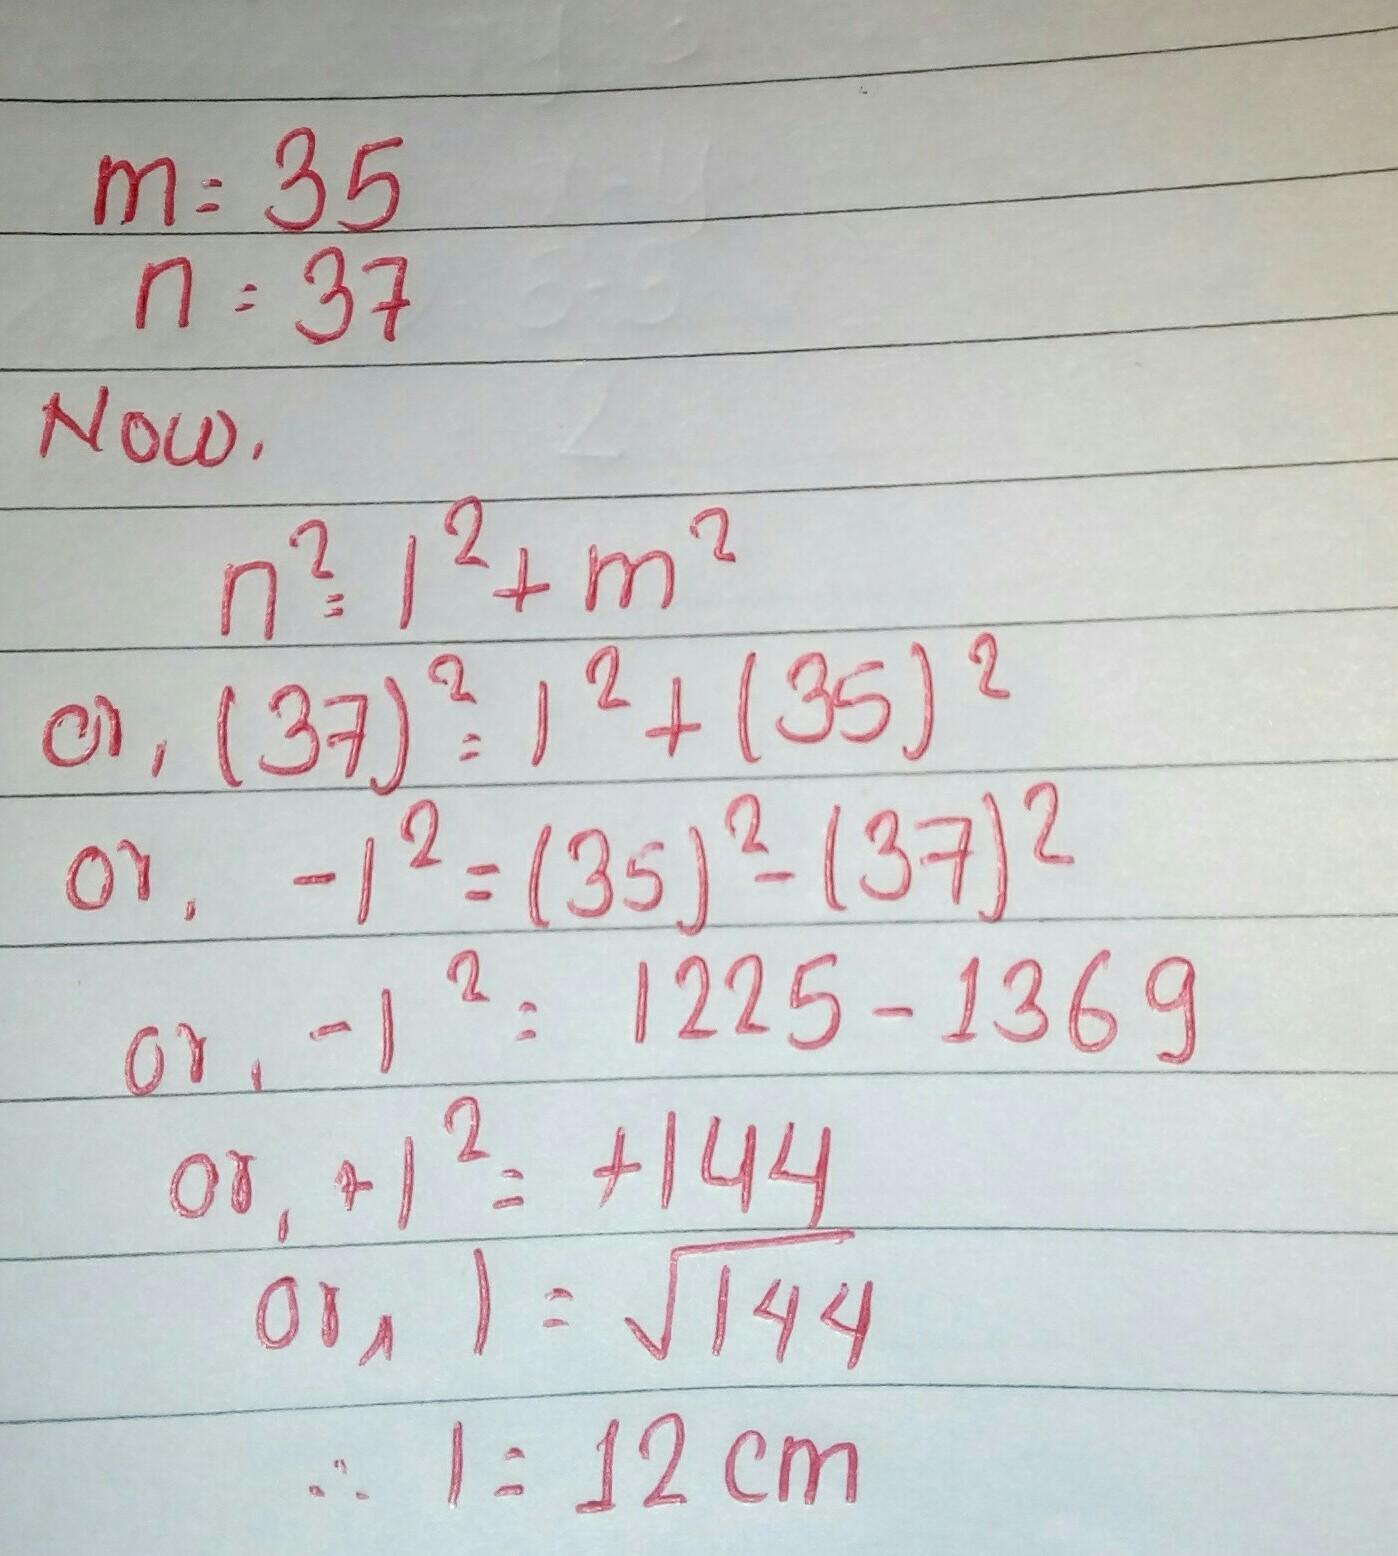 m = 35
n = 37
Now,
n² = l² + m²
or, (37)² = l² + (35)²
or, -l² = (35)² - (37)²
or, -l² = 1225 - 1369
or, +l² = +144
or, l = √144
∴ l = 12 cm